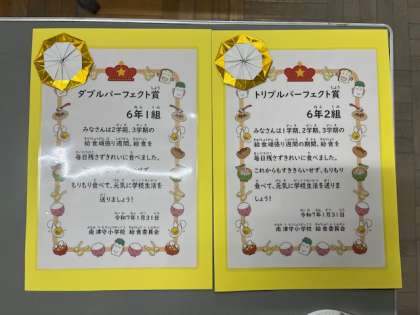 ダブルパーフェクト賞
6年1組
みなさんは2学期、3学期の
給食頑張り週間の期間、給食を
毎日残さずきれいに食べました。
もりもり食べて、元気に学校生活を
送りましょう!
令和7年1月31日
南津守小学校 給食委員会
トリプルパーフェクト賞
6年2組
みなさんは1学期、2学期、3学期の
給食頑張り週間の期間、給食を
毎日残さずきれいに食べました。
これからもすききらいせず、もりもり
食べて、元気に学校生活を送りま
しょう!
令和7年1月31日
南津守小学校 給食委員会